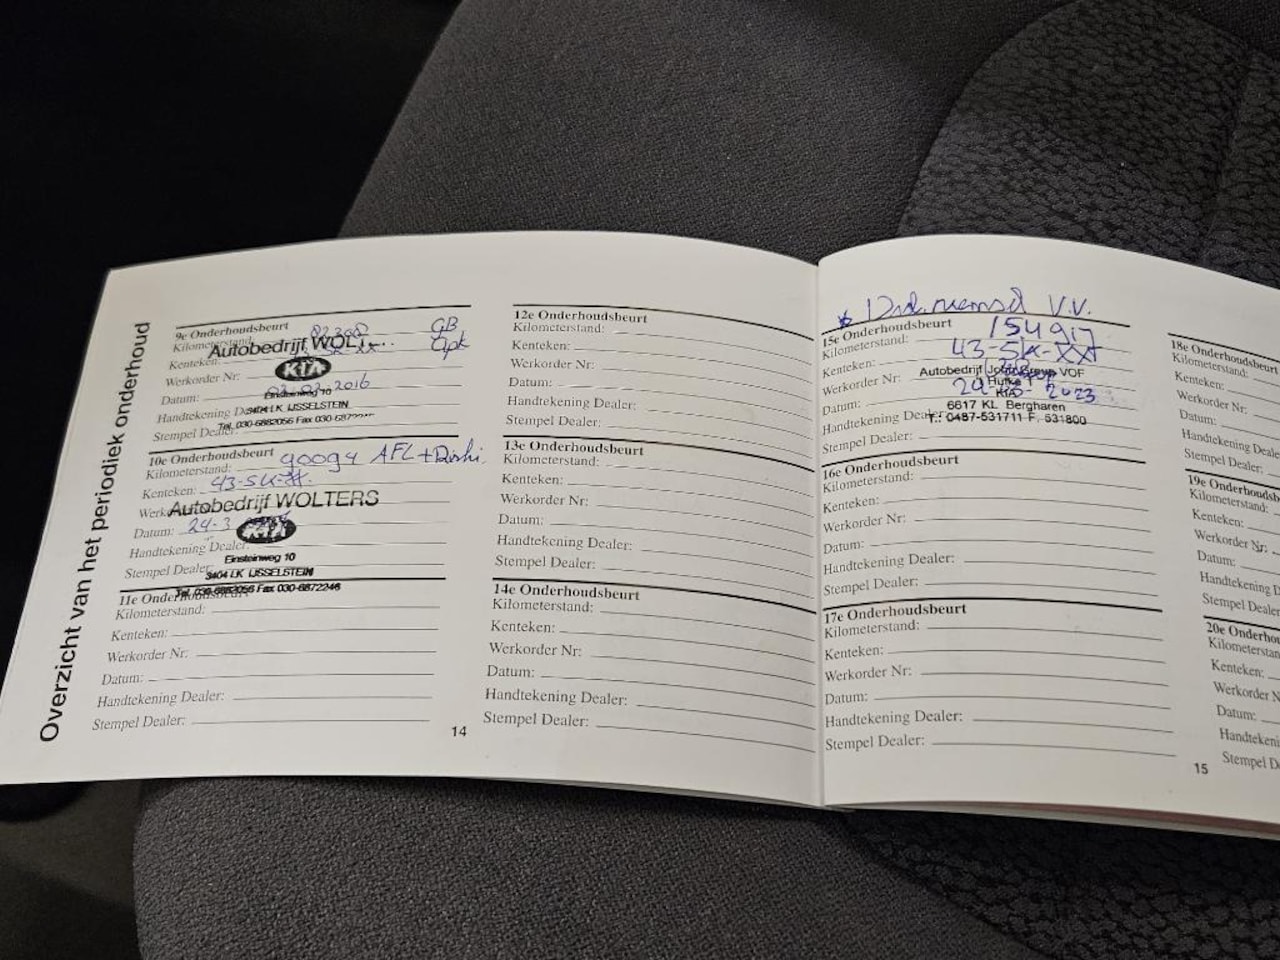 Overzicht van het periodiek onderhoud
9e Onderhoudsbeurt GB
Kilometerstand: 82308 apk
Autobedrijf WOLT...
Kenteken:
KIA
Werkorder Nr:
Datum: 03-02-2016
Einsteinweg 10
Handtekening Dealer:
3404 LK IJSSELSTEIN
Tel. 030-6882056 Fax 030-6872
Stempel Dealer:
10e Onderhoudsbeurt
Kilometerstand: 90094 AFL+
Kenteken: 43-SK-XX
Autobedrijf WOLTERS
Datum: 24-3
KIA
Handtekening Dealer:
Einsteinweg 10
Stempel Dealer:
3404 LK IJSSELSTEIN
Tel. 030-6882056 Fax 030-6872246
11e Onderhoudsbeurt
Kilometerstand:
Kenteken:
Werkorder Nr:
Datum:
Handtekening Dealer:
Stempel Dealer:
14
12e Onderhoudsbeurt
Kilometerstand:
Kenteken:
Werkorder Nr:
Datum:
Handtekening Dealer:
Stempel Dealer:
13e Onderhoudsbeurt
Kilometerstand:
Kenteken:
Werkorder Nr:
Datum:
Handtekening Dealer:
Stempel Dealer:
14e Onderhoudsbeurt
Kilometerstand:
Kenteken:
Werkorder Nr:
Datum:
Handtekening Dealer:
Stempel Dealer:
V.V.
15e Onderhoudsbeurt
Kilometerstand: 154917
Kenteken: 43-SK-XX
Autobedrijf VOF
Werkorder Nr:
KIA
Datum: 2023
6617 KL Bergharen
Handtekening Dealer:
T.: 0487-531711 F. 531800
Stempel Dealer:
16e Onderhoudsbeurt
Kilometerstand:
Kenteken:
Werkorder Nr:
Datum:
Handtekening Dealer:
Stempel Dealer:
17e Onderhoudsbeurt
Kilometerstand:
Kenteken:
Werkorder Nr:
Datum:
Handtekening Dealer:
Stempel Dealer:
15
18e Onderhoudsbeurt
Kilometerstand:
Kenteken:
Werkorder Nr:
Datum:
Handtekening Dealer
Stempel Dealer:
19e Onderhoudsb
Kilometerstand:
Kenteken:
Werkorder Nr:
Datum:
Handtekening D
Stempel Dealer
20e Onderhou
Kilometerstan
Kenteken:
Werkorder N
Datum:
Handtekeni
Stempel D